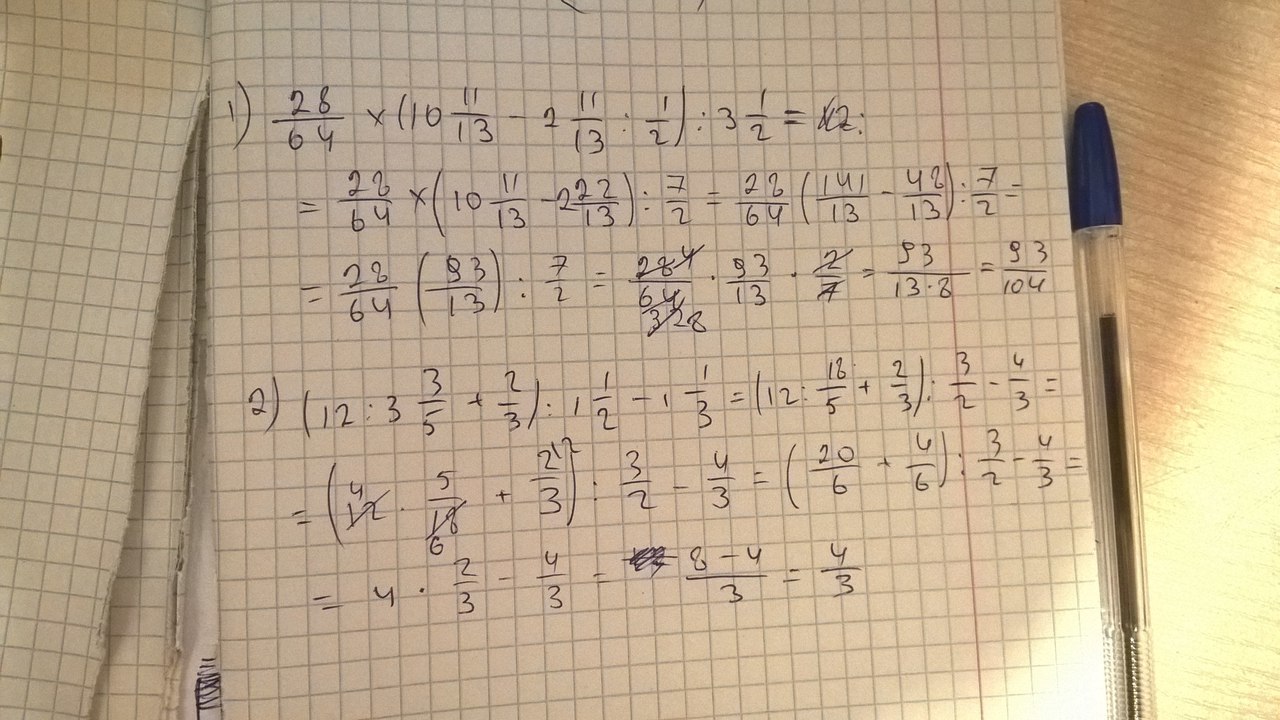 1) 28/64 × (10 11/13 - 2 11/13 : 1/2) : 3 1/2 =
= 28/64 × (10 11/13 - 2 22/13) : 7/2 = 28/64 (141/13 - 48/13) : 7/2 =
= 28/64 (93/13) : 7/2 = 28 4/64 32 8 · 93/13 · 2/7 = 93/13·8 = 93/104
2) (12 : 3 3/5 + 2/3) : 1 1/2 - 1 1/3 = (12 : 18/5 + 2/3) : 3/2 - 4/3 =
= (12 4 · 5/18 6 + 2/3 \2) : 3/2 - 4/3 = (20/6 + 4/6) : 3/2 - 4/3 =
= 4 · 2/3 - 4/3 = 8-4/3 = 4/3